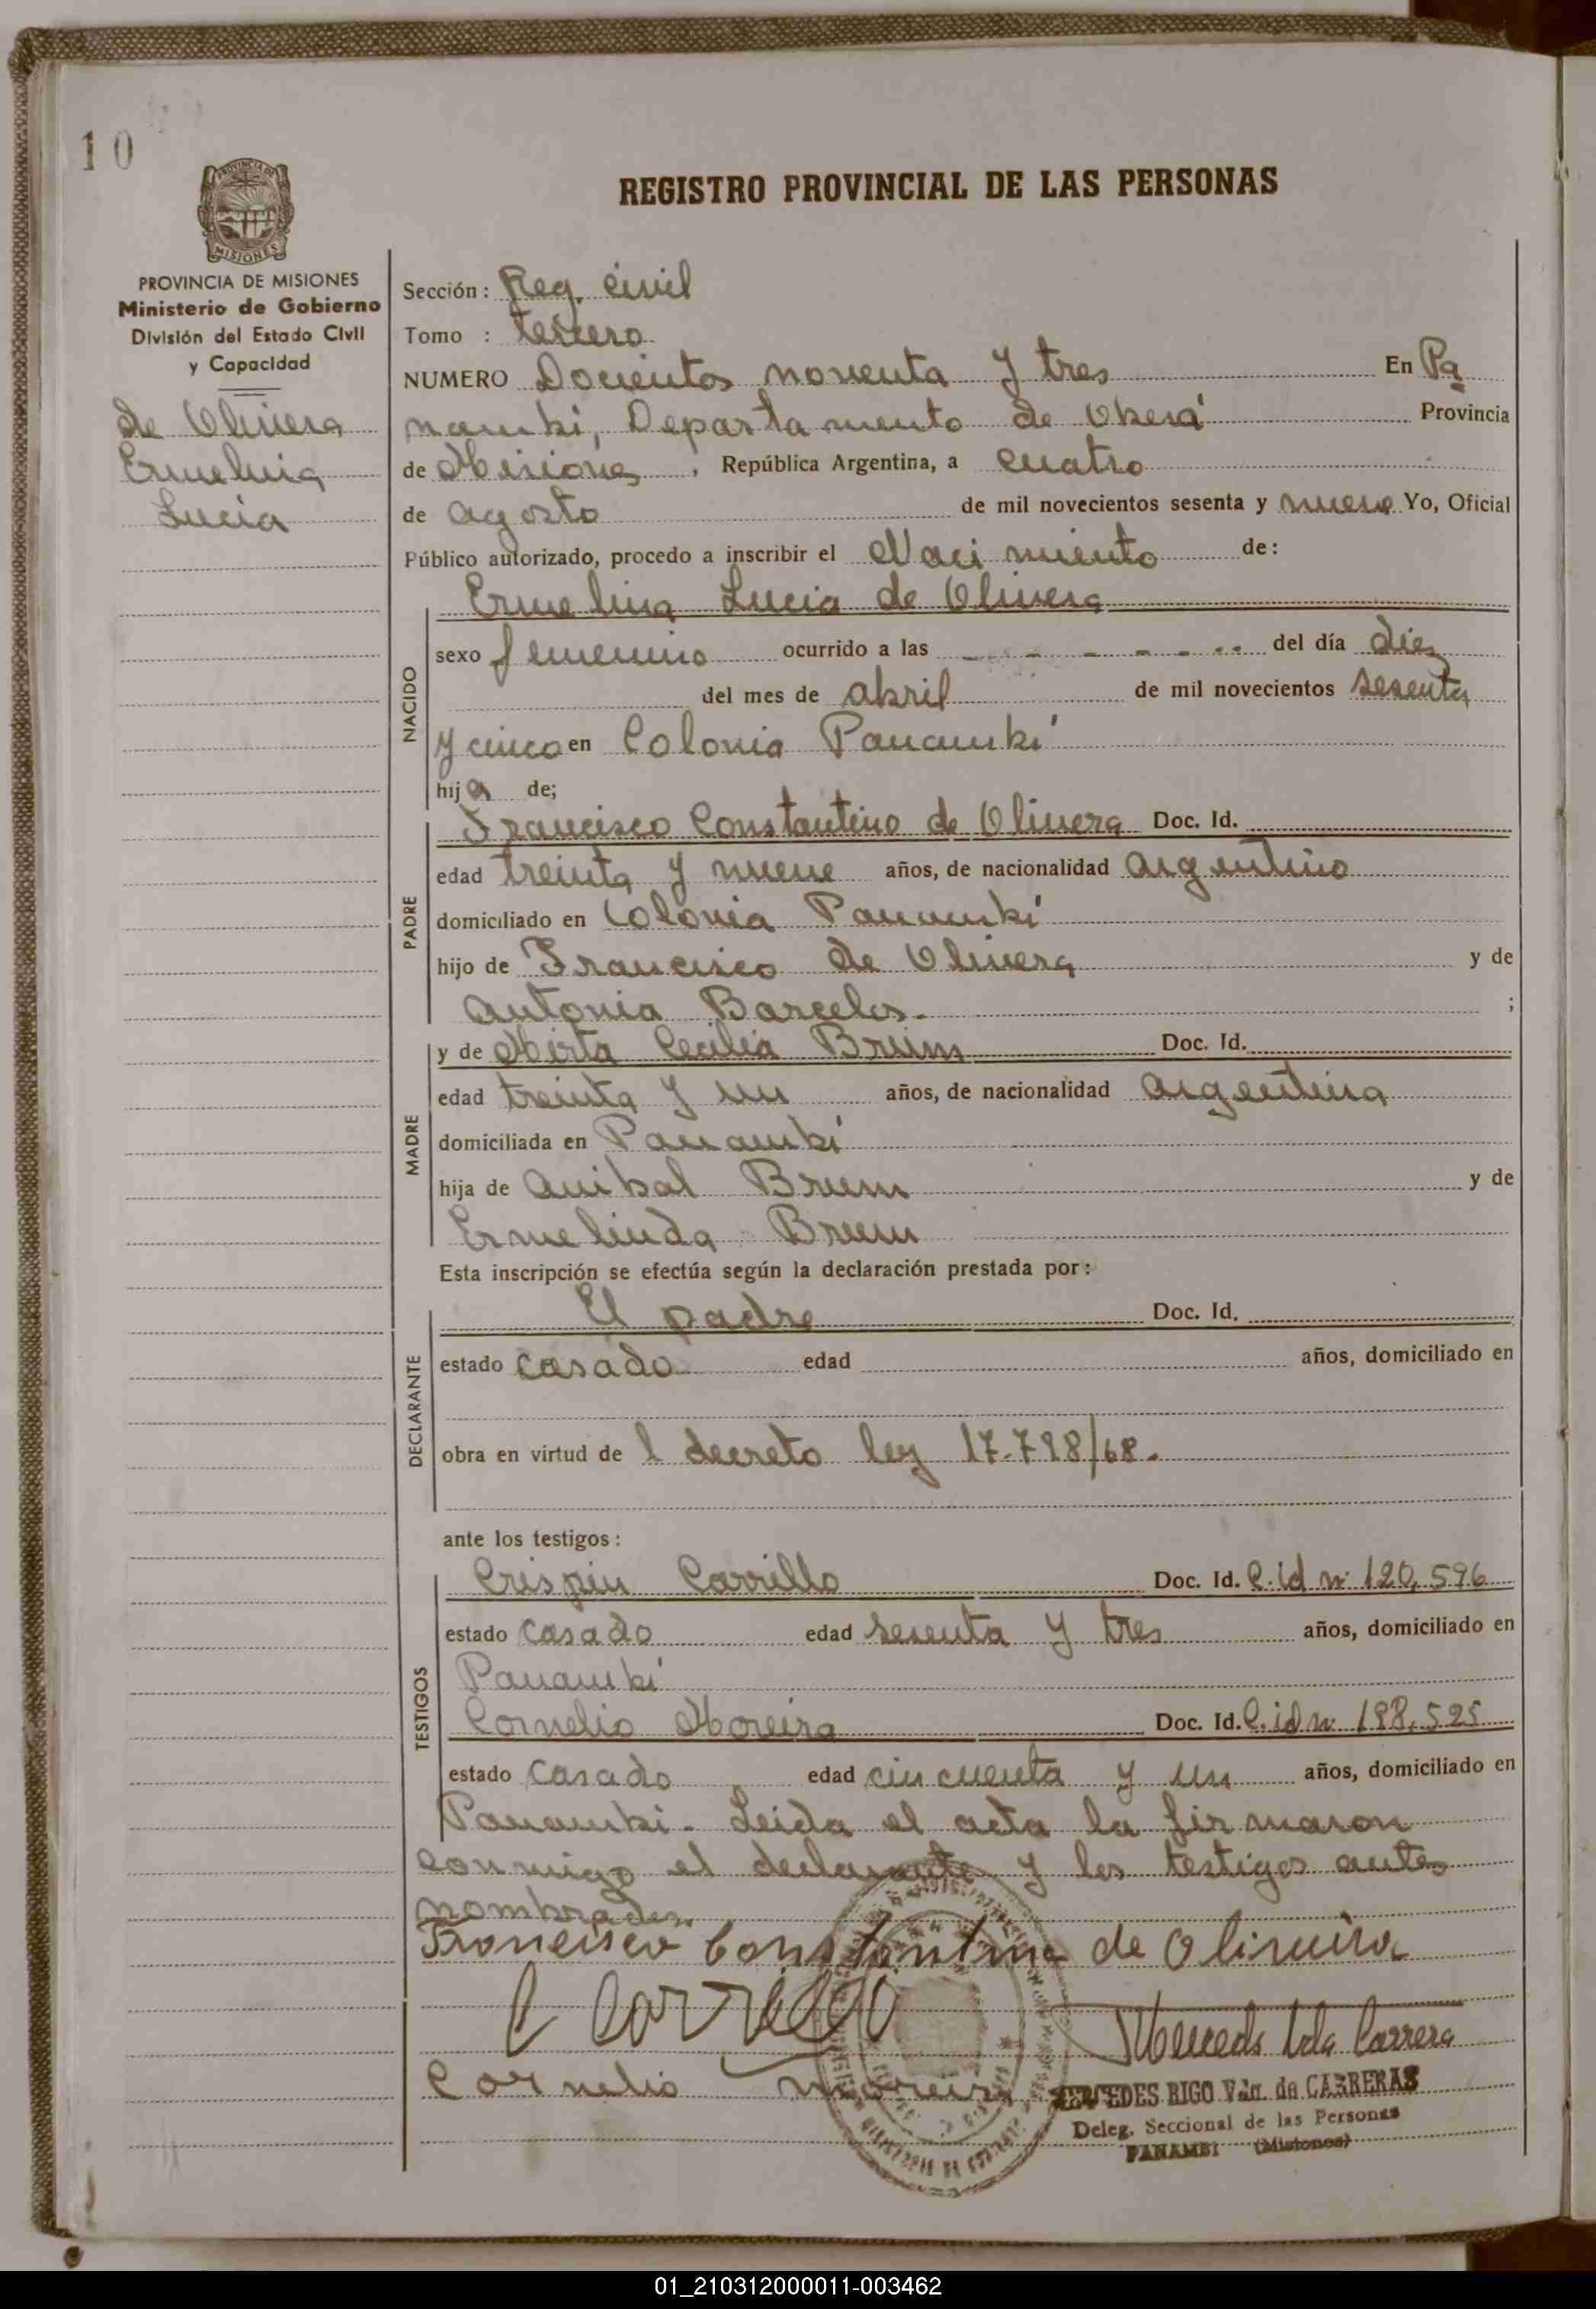 10
REGISTRO PROVINCIAL DE LAS PERSONAS
PROVINCIA DE MISIONES
Ministerio de Gobierno
División del Estado Civil
y Capacidad
de Olivera
Ermelina
Lucia
Sección: Reg. civil
Tomo : tercero
NUMERO Docientos noventa y tres En Pa
nambí, Departamento de Oberá Provincia
de Misiones, República Argentina, a cuatro
de agosto de mil novecientos sesenta y nueve Yo, Oficial
Público autorizado, procedo a inscribir el Nacimiento de:
Ermelina Lucia de Olivera
NACIDO
sexo femenino ocurrido a las - - - - - - - del día diez
del mes de abril de mil novecientos sesenta
y cinco en Colonia Panambí
hija de;
PADRE
Francisco Constantino de Olivera Doc. Id.
edad treinta y nueve años, de nacionalidad argentino
domiciliado en Colonia Panambí
hijo de Francisco de Olivera y de
Antonia Barcelos. ;
MADRE
y de Mirta Cecilia Brum Doc. Id.
edad treinta y un años, de nacionalidad argentina
domiciliada en Panambí
hija de Anibal Brum y de
Ermelinda Brum
Esta inscripción se efectúa según la declaración prestada por:
DECLARANTE
El padre Doc. Id.
estado casado edad años, domiciliado en
obra en virtud de l decreto ley 17.718/68.
ante los testigos:
TESTIGOS
Crispin Carrillo Doc. Id. C. id nº 120,596
estado casado edad sesenta y tres años, domiciliado en
Panambí
Cornelio Moreira Doc. Id. C. id nº 198,525
estado casado edad cincuenta y un años, domiciliado en
Panambi. Leida el acta la firmaron
conmigo el declarante y los testigos antes
nombrados.
Francisco Constantino de Oliveira
C Carrillo
Cornelio Moreira
MERCEDES RIGO Vda. de CARRERAS
Deleg. Seccional de las Personas
PANAMBI (Misiones)
01_210312000011-003462